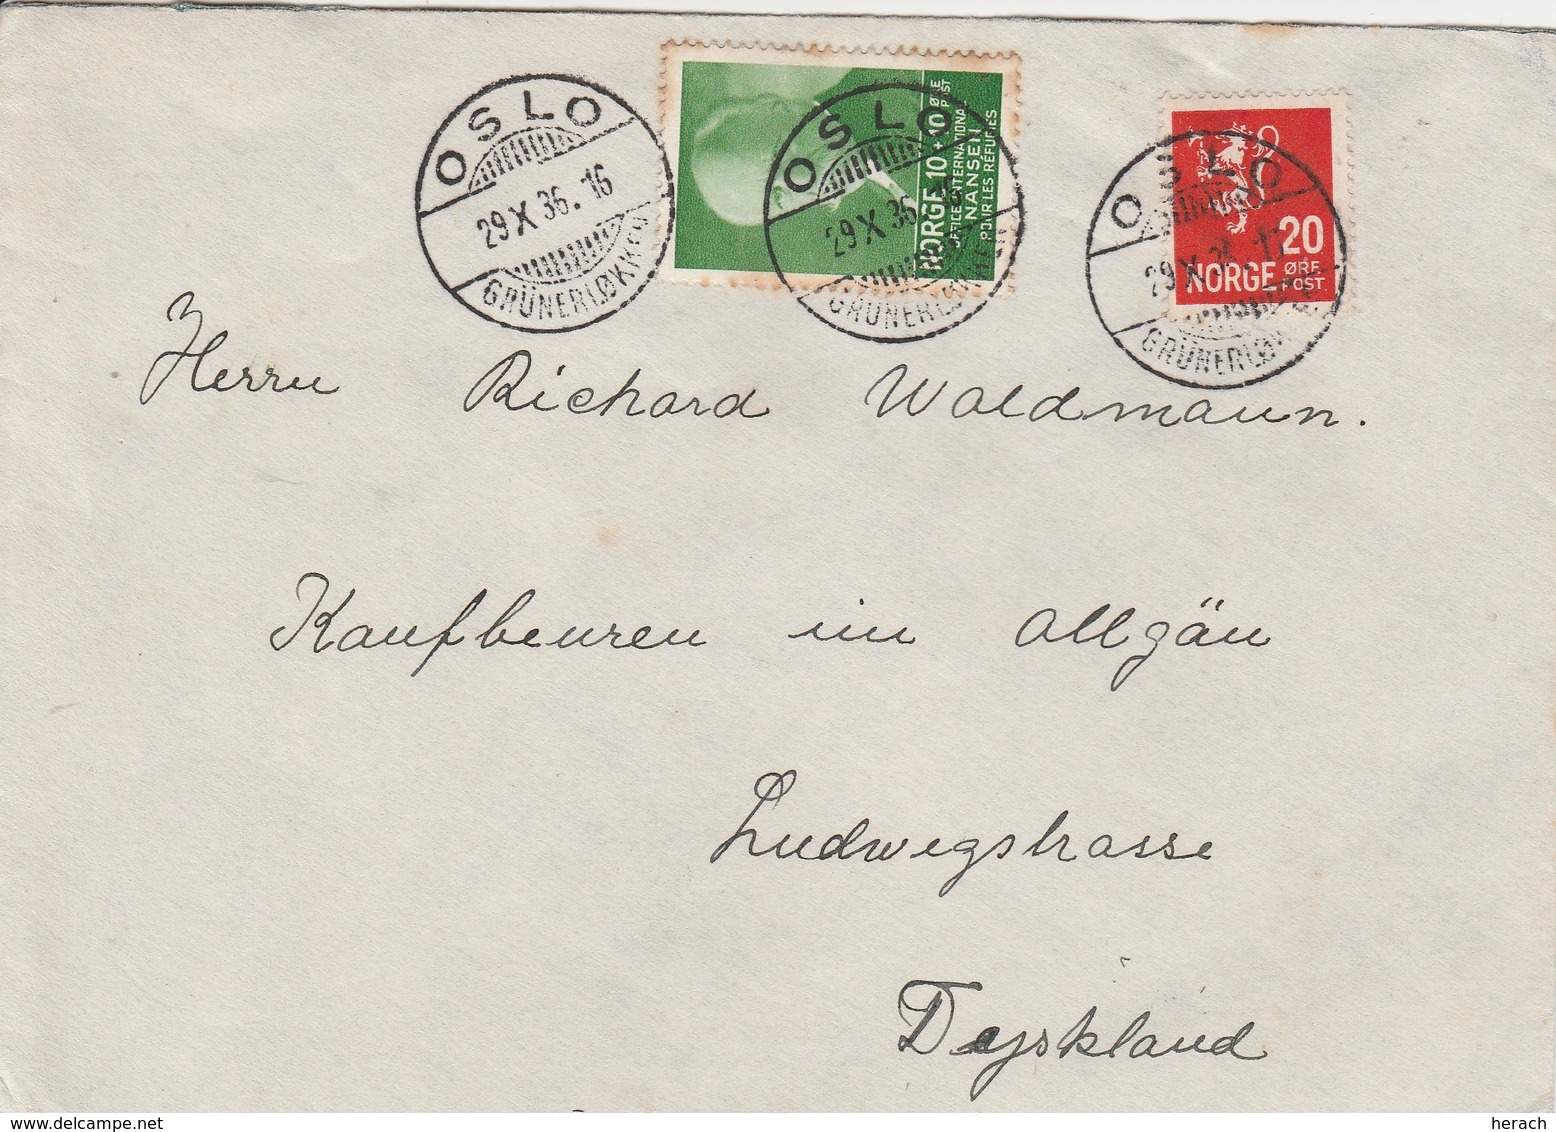 OSLO
29 X 36. 16
GRÜNERLØKKEN
NORGE 10 + 10 ØRE POST
OFFICE INTERNATIONAL
NANSEN
POUR LES RÉFUGIÉS
OSLO
29 X 36
GRÜNERLØKKEN
OSLO
29 X 36 17
GRÜNERLØKKEN
20
NORGE ØRE
POST
Herrn Richard Waldmann.
Kaufbeuren im Allgäu
Ludwegstrasse
Deyskland
herach